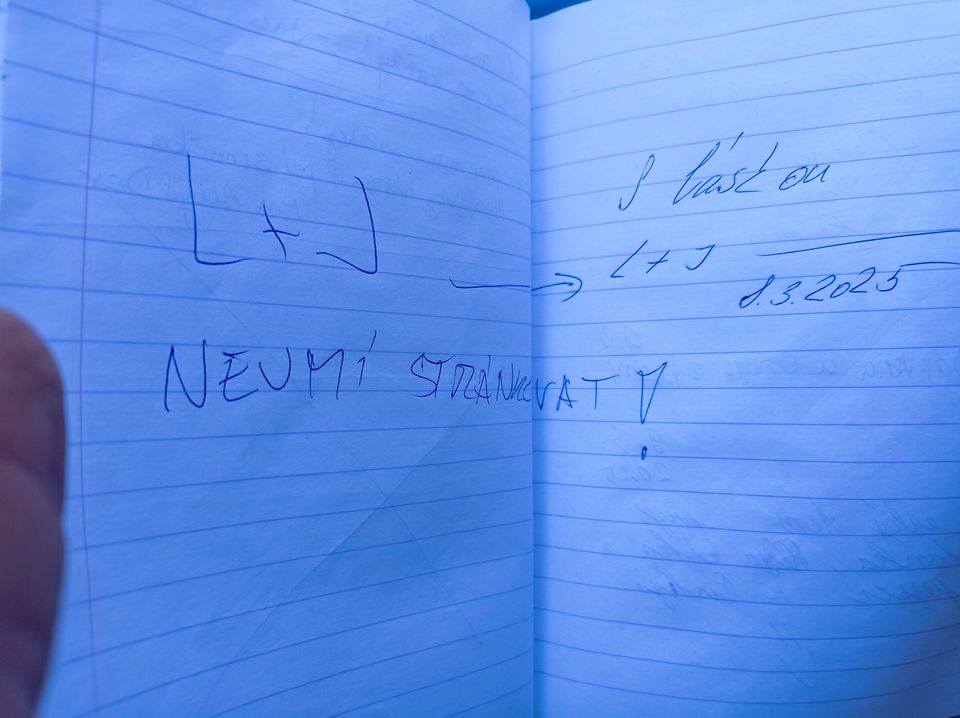 L + J →
NEUMÍ STRÁNKOVAT !
S láskou
L + J
8.3.2025